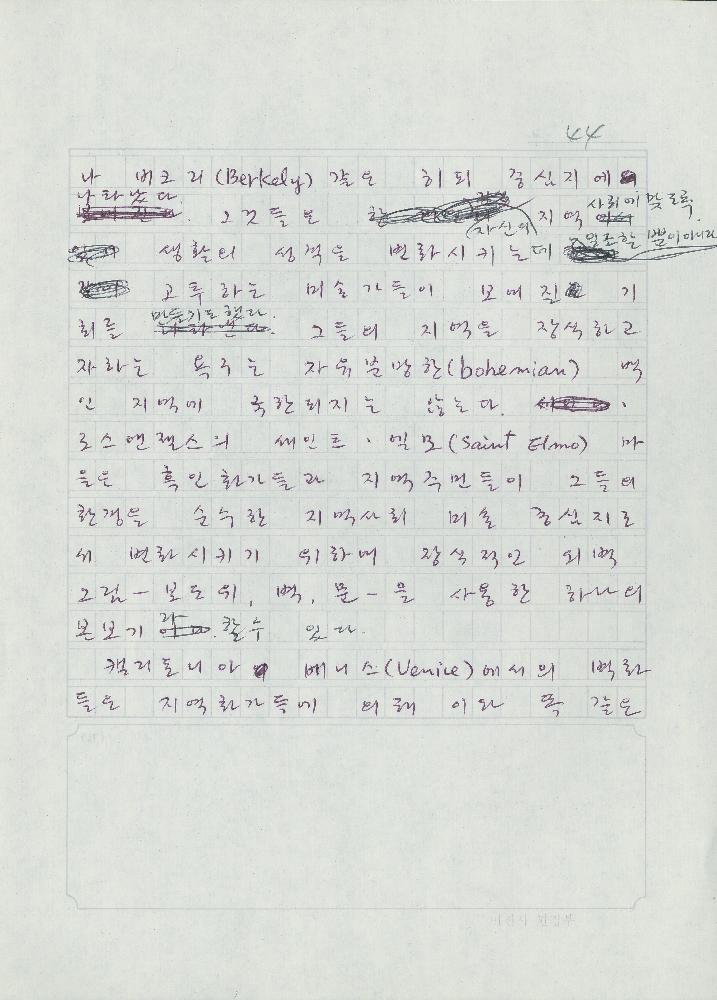 44
나 버크리(Berkely) 같은 히피 중심지에
나타났다. 그것들은 자신의 지역 사회에 맞도록
생활의 성격을 변화시키는데 일조할 뿐이 아니라
고루하는 미술가들이 보여진 기
회를 만들기도 했다. 그들의 지역을 장식하고
자하는 욕구는 자유분방한(bohemian) 백
인 지역에 국한되지는 않는다.
로스앤젤스의 세인트·엘모(Saint Elmo) 마
을은 흑인화가들과 지역주민들이 그들의
환경을 순수한 지역사회 미술 중심지로
서 변화시키기 위하여 장식적인 외벽
그림-보도위, 벽, 문-을 사용한 하나의
본보기라 할수 있다.
캘리포니아 베니스(Venice)에서의 벽화
들은 지역화가들에 의해 이와 똑같은
편집부